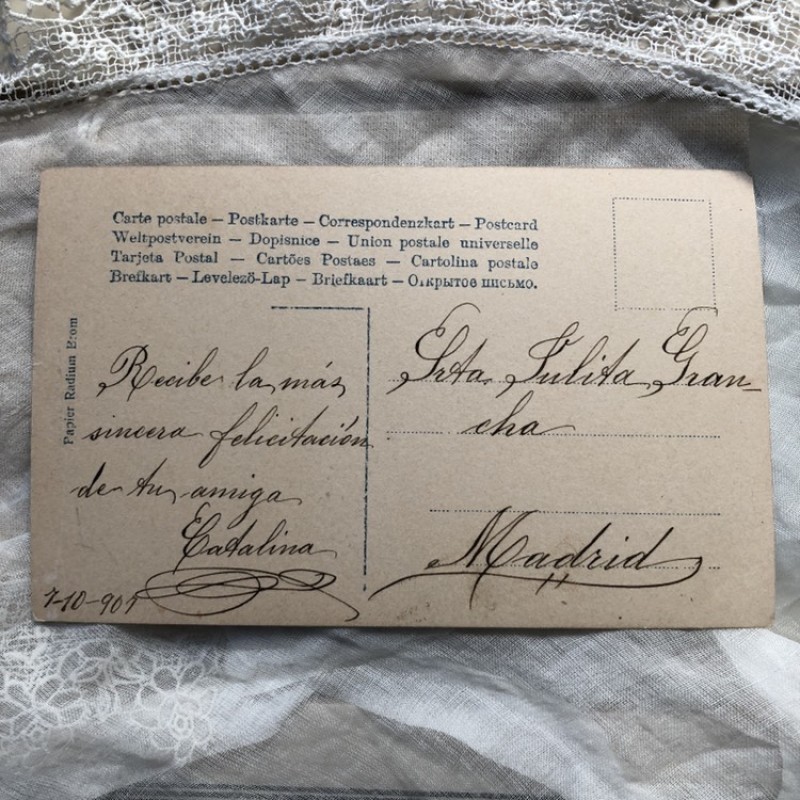 Carte postale — Postkarte — Correspondenzkart — Postcard
Weltpostverein — Dopisnice — Union postale universelle
Tarjeta Postal — Cartões Postaes — Cartolina postale
Brefkart — Levelező-Lap — Briefkaart — Открытое письмо.
Papier Radium Brom
Recibe la más
sincera felicitación
de tu amiga
Catalina
7-10-907
Srta. Julita Gran-
cha
Madrid